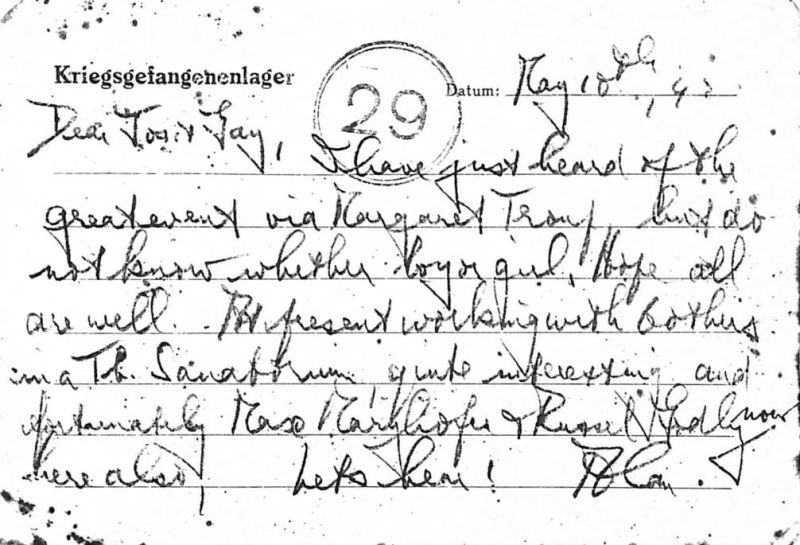 Kriegsgefangenenlager
29
Datum: May 10th, 42
Dear Tos & Gay, I have just heard of the
great event via Margaret Troup, but do
not know whether boy or girl, Hope all
are well. At present working with 6 others
in a Tb. Sanatorium, quite interesting and
fortunately Max & Russel now
here also, Let's hear! Alan.